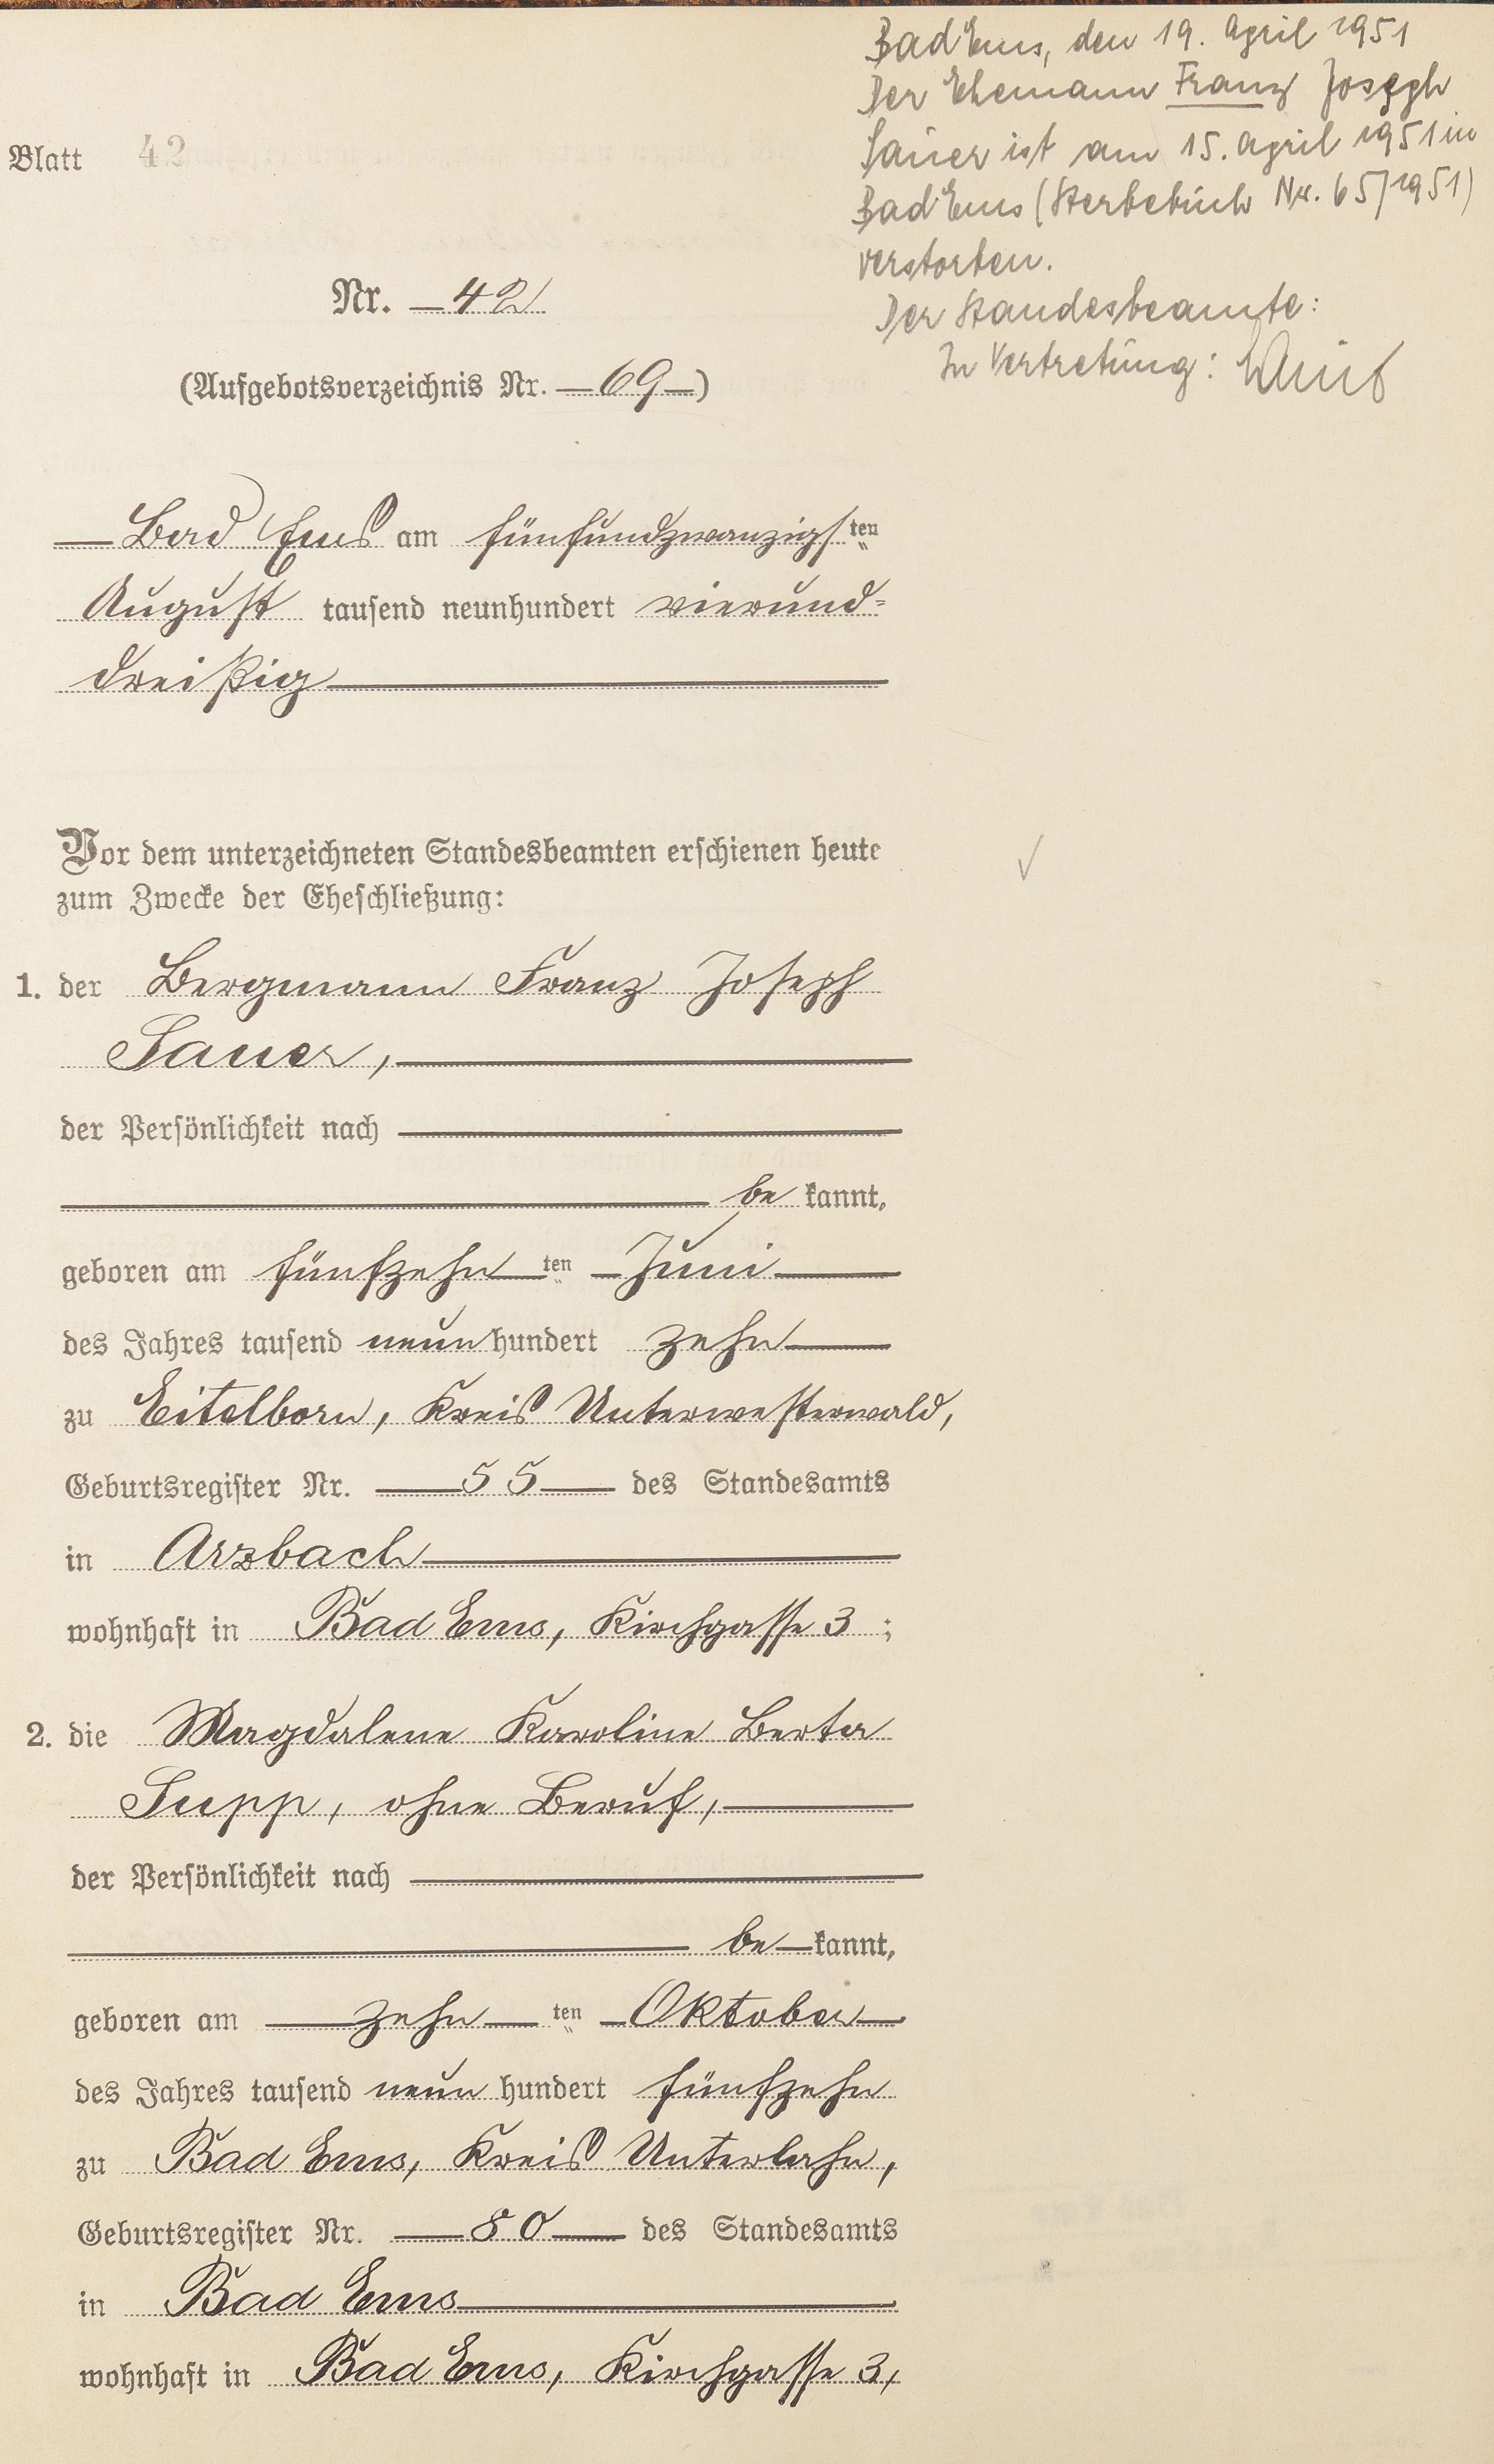 Bad Ems, den 19. April 1951
Der Ehemann Franz Joseph
Sauer ist am 15. April 1951 in
Bad Ems (Sterbebuch Nr. 65/1951)
verstorben.
Der Standesbeamte:
In Vertretung:
Blatt 42
Nr. 42
(Aufgebotsverzeichnis Nr. 69)
Bad Ems am fünfundzwanzigsten
August tausend neunhundert vierund=
dreißig
Vor dem unterzeichneten Standesbeamten erschienen heute
zum Zwecke der Eheschließung:
1. der Bergmann Franz Joseph
Sauer,
der Persönlichkeit nach
be kannt,
geboren am fünfzehn ten Juni
des Jahres tausend neun hundert zehn
zu Eitelborn, Kreis Unterwesterwald,
Geburtsregister Nr. 55 des Standesamts
in Arzbach
wohnhaft in Bad Ems, Kirchgasse 3;
2. die Magdalene Karoline Berta
Supp, ohne Beruf,
der Persönlichkeit nach
be kannt,
geboren am zehn ten Oktober
des Jahres tausend neun hundert fünfzehn
zu Bad Ems, Kreis Unterlahn,
Geburtsregister Nr. 80 des Standesamts
in Bad Ems
wohnhaft in Bad Ems, Kirchgasse 3,